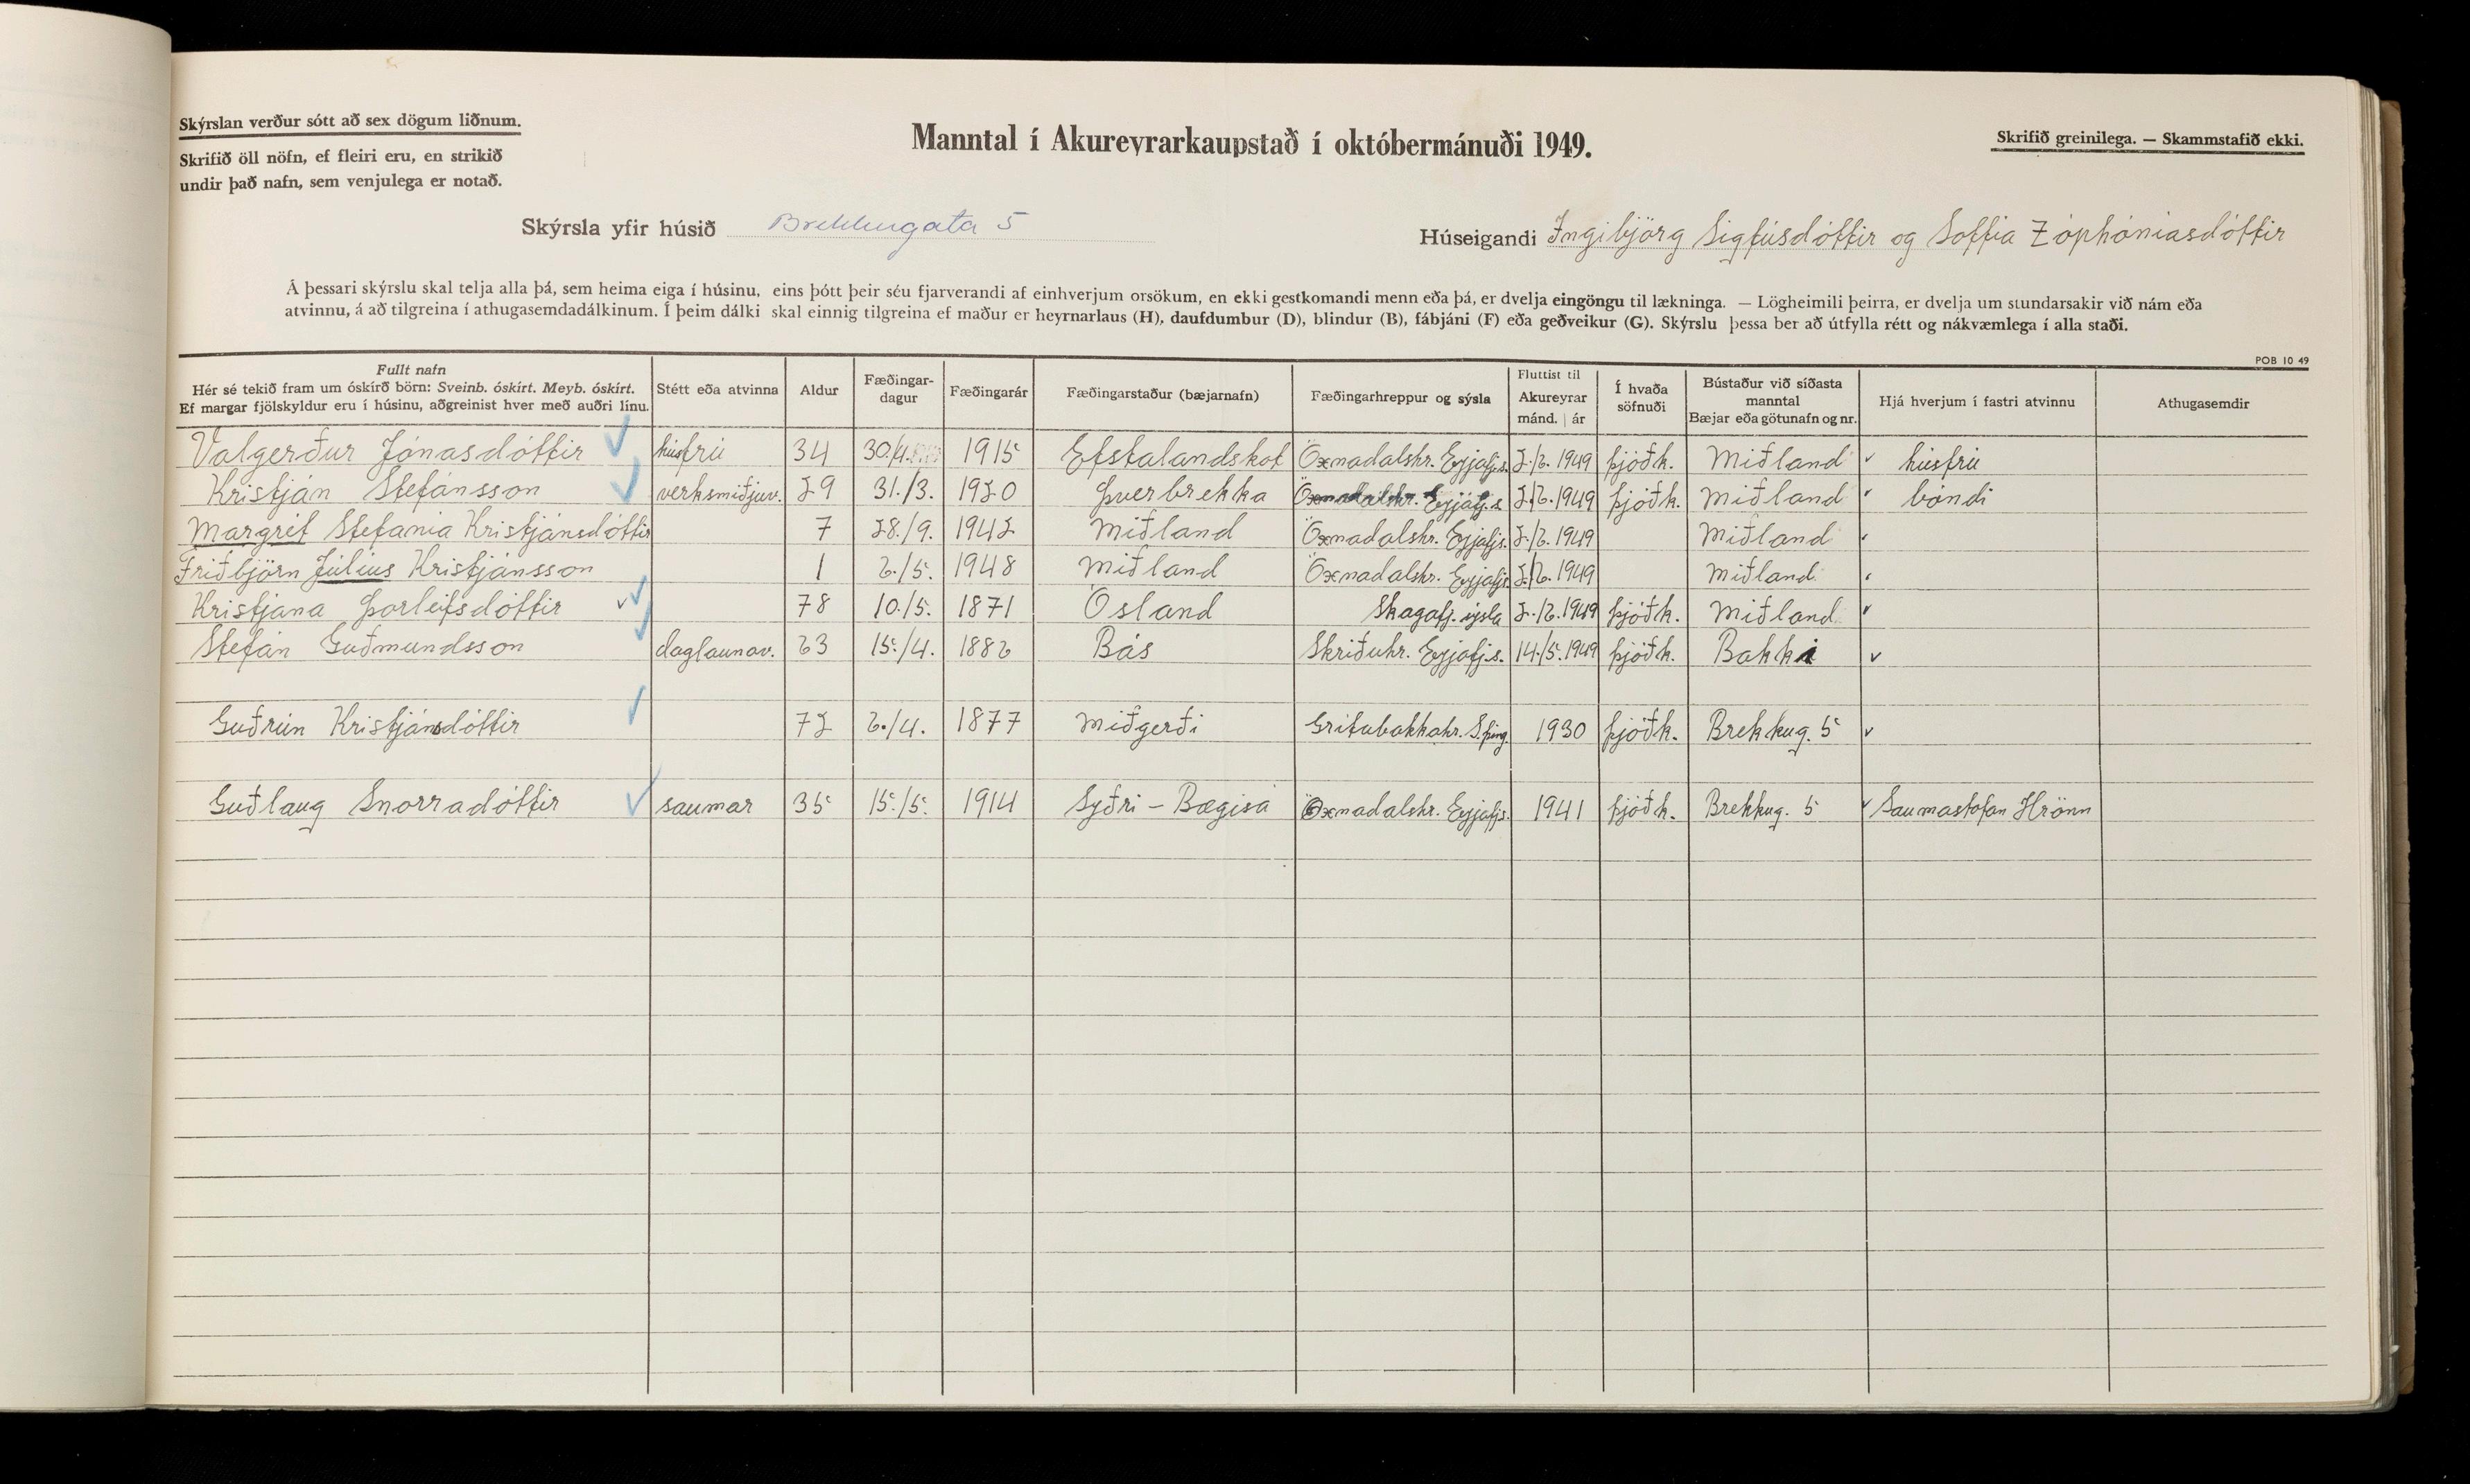 Skýrslan verður sótt að sex dögum liðnum.
Skrifið öll nöfn, ef fleiri eru, en strikið
undir það nafn, sem venjulega er notað.
Manntal í Akureyrarkaupstað í októbermánuði 1949.
Skrifið greinilega. — Skammstafið ekki.
Skýrsla yfir húsið Brekkugata 5
Húseigandi Ingibjörg Sigfúsdóttir og Soffia Zóphóníasdóttir
Á þessari skýrslu skal telja alla þá, sem heima eiga í húsinu, eins þótt þeir séu fjarverandi af einhverjum orsökum, en ekki gestkomandi menn eða þá, er dvelja eingöngu til lækninga. — Lögheimili þeirra, er dvelja um stundarsakir við nám eða
atvinnu, á að tilgreina í athugasemdadálkinum. Í þeim dálki skal einnig tilgreina ef maður er heyrnarlaus (H), daufdumbur (D), blindur (B), fábjáni (F) eða geðveikur (G). Skýrslu þessa ber að útfylla rétt og nákvæmlega í alla staði.
POB 10 49
Fullt nafn
Hér sé tekið fram um óskírð börn: Sveinb. óskírt. Meyb. óskírt.
Ef margar fjölskyldur eru í húsinu, aðgreinist hver með auðri línu.
Stétt eða atvinna
Aldur
Fæðingar-
dagur
Fæðingarár
Fæðingarstaður (bæjarnafn)
Fæðingarhreppur og sýsla
Fluttist til
Akureyrar
mánd. | ár
Í hvaða
söfnuði
Bústaður við síðasta
manntal
Bæjar eða götunafn og nr.
Hjá hverjum í fastri atvinnu
Athugasemdir
Valgerður Jónasdóttir húsfrú 34 30./4. 1915 Efstalandskot Öxnadalshr. Eyjafjs. 2./6. 1949 þjóðk. Miðland húsfrú
Kristján Stefánsson verksmiðjuv. 29 31./3. 1920 Þverbrekka Öxnadalshr. Eyjafj.s. 2./6. 1949 þjóðk. Miðland bóndi
Margrét Stefania Kristjánsdóttir 7 28./9. 1942 Miðland Öxnadalshr. Eyjafjs. 2./6. 1949 Miðland
Friðbjörn Júlíus Kristjánsson 1 6./5. 1948 Miðland Öxnadalshr. Eyjafjs. 2./6. 1949 Miðland
Kristjana Þorleifsdóttir 78 10./5. 1871 Ósland Skagafj. sýsla 2./6. 1949 þjóðk. Miðland
Stefán Guðmundsson daglaunav. 63 15./4. 1886 Bás Skriðuhr. Eyjafj.s. 14./5. 1949 þjóðk. Bakki
Guðrún Kristjánsdóttir 72 6./4. 1877 Miðgerði Grítubakkahr. S.þing. 1930 þjóðk. Brekkug. 5
Guðlaug Snorradóttir saumar 35 15./5. 1914 Syðri - Bægisá Öxnadalshr. Eyjafjs. 1941 þjóðk. Brekkug. 5 Saumastofan Hrönn